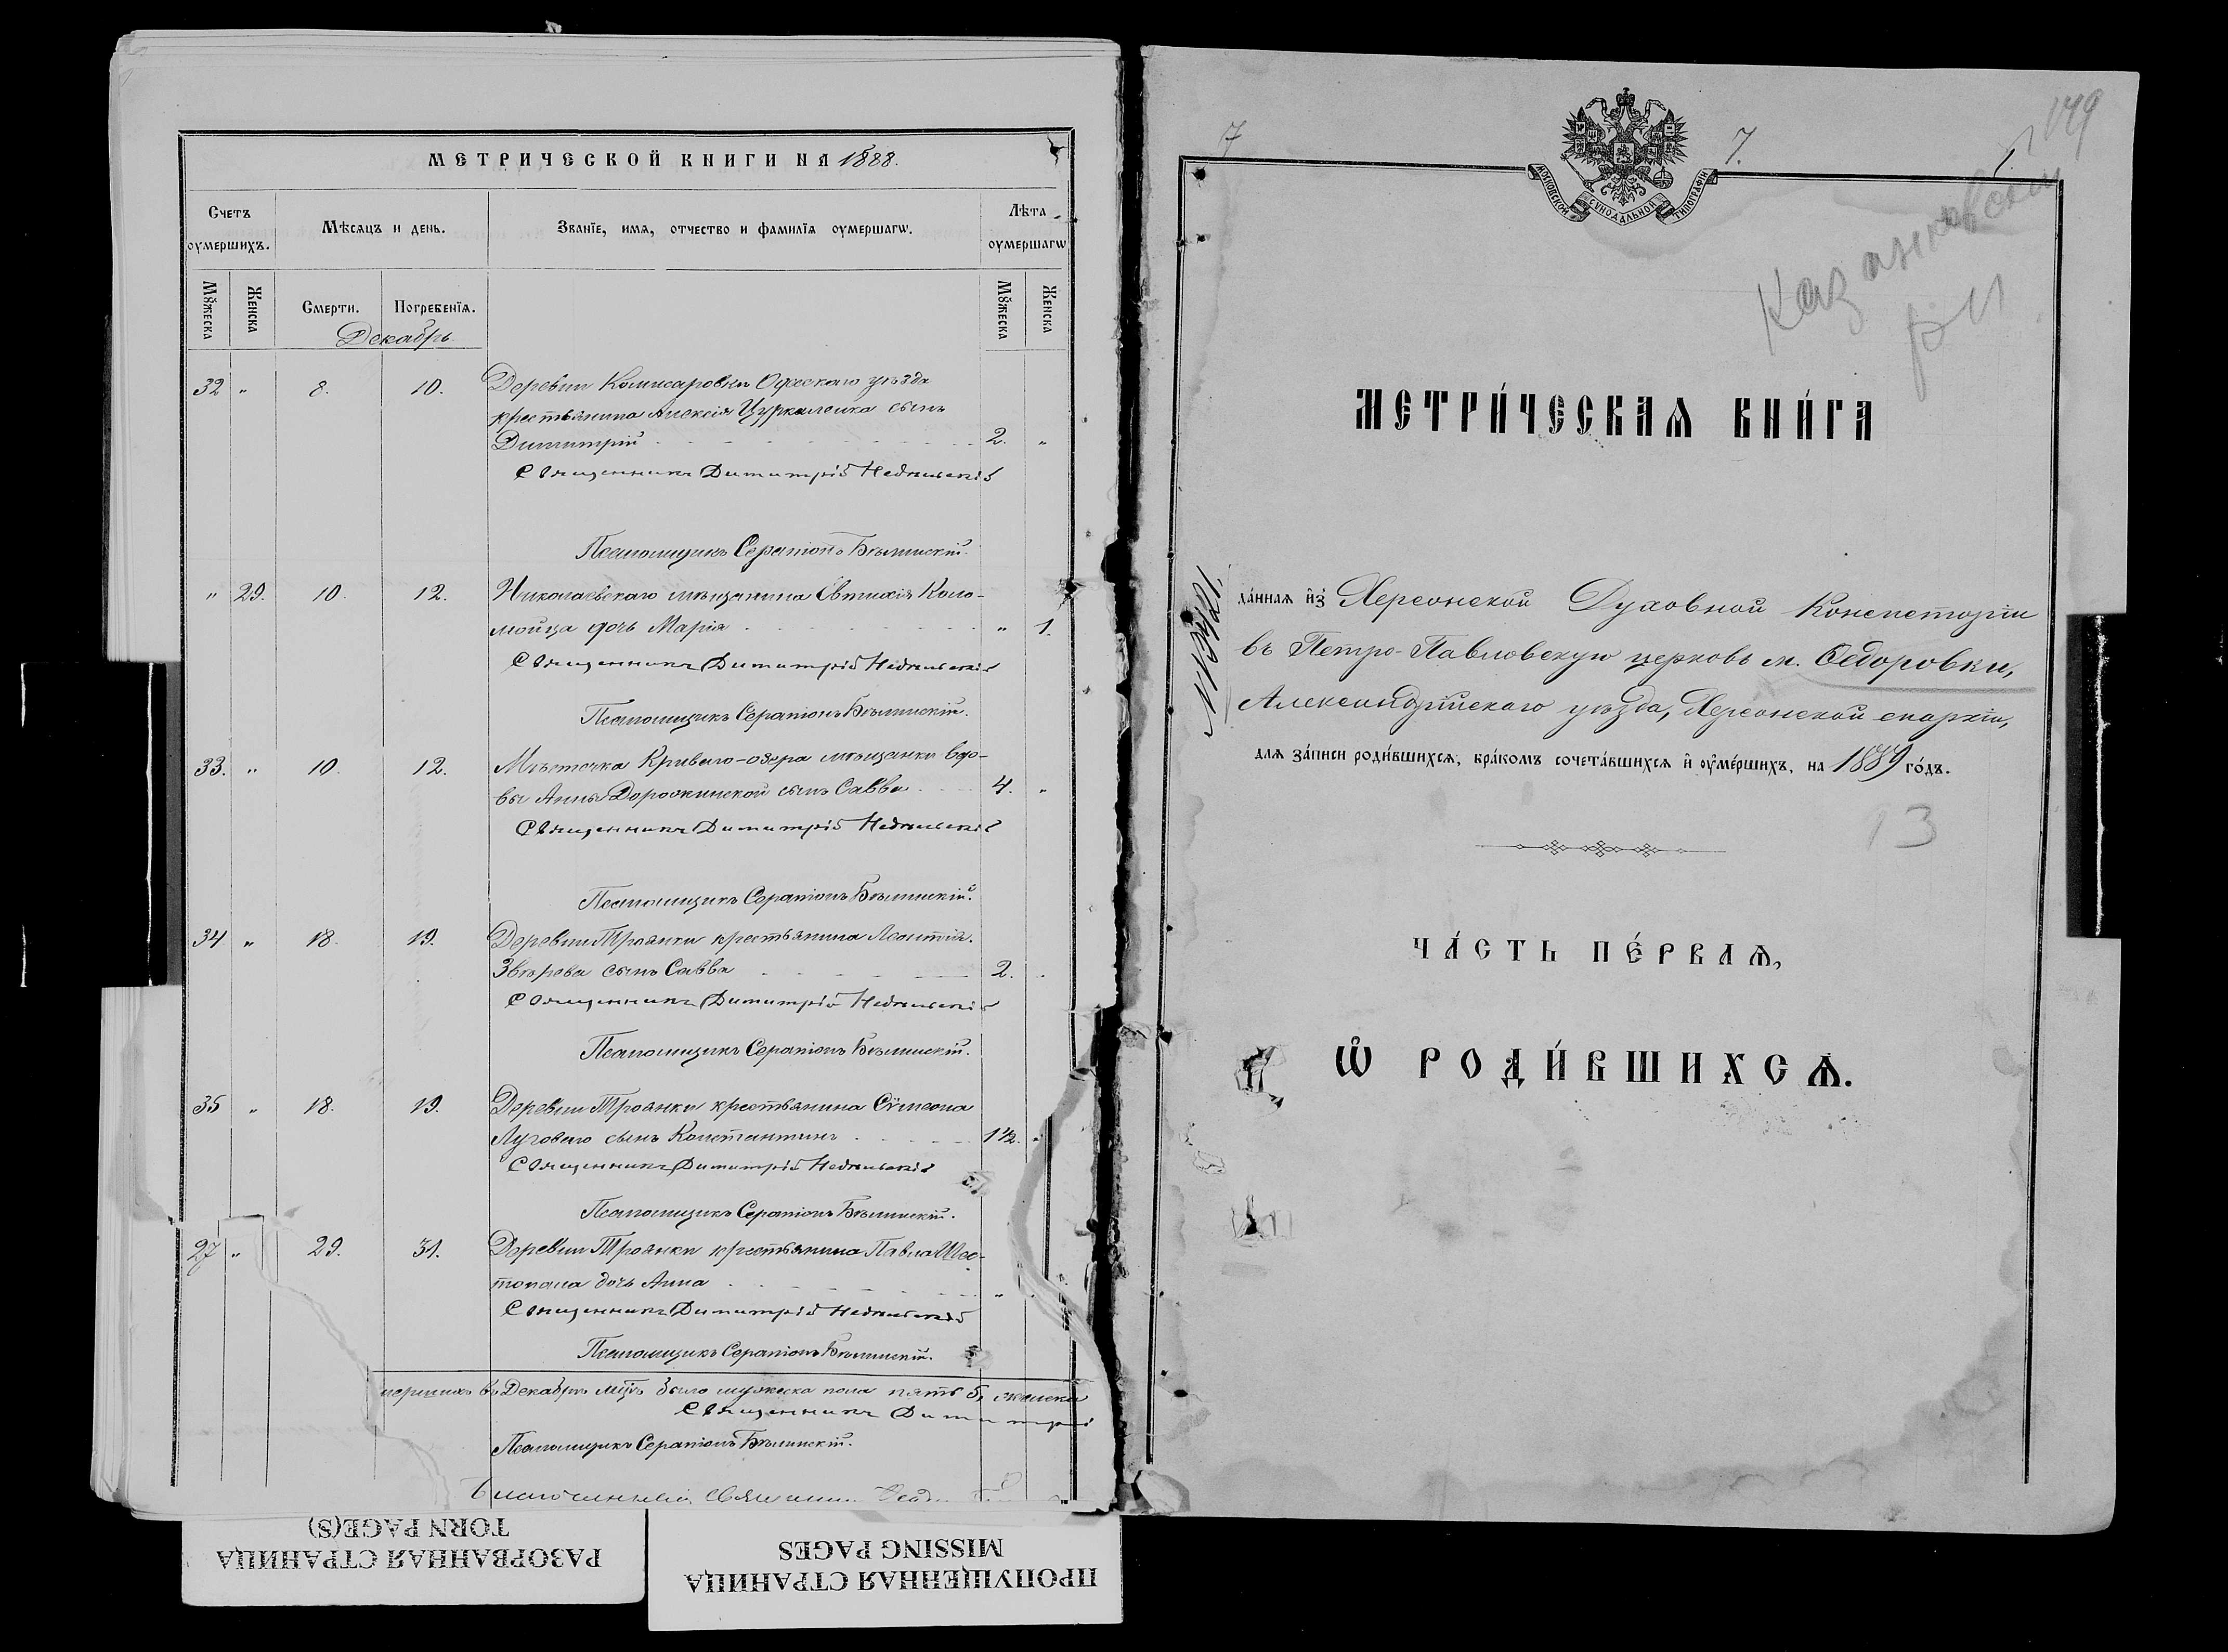 МЕТРИЧЕСКОЙ КНИГИ НА 1888.
Счетъ
оумершихъ.
Мѣсяцъ и день.
Званїе, имя, отчество и фамилїя оумершагѡ.
Лѣта
оумершагѡ
Мꙋжеска
Женска
Смерти.
Погребенїя.
Мꙋжеска
Женска
Декабрь
32 " 8. 10. Деревни Комисаровки Одесскаго уѣзда
крестьянина Алексія Цуркаленка сынъ
Димитрій 2. "
Священникъ Димитрій Недѣльскій
Псаломщикъ Серапіонъ Бѣлинскій.
" 29. 10. 12. Николаевскаго мѣщанина Евтихія Коло-
мойца дочь Марія " 1.
Священникъ Димитрій Недѣльскій
Псаломщикъ Серапіонъ Бѣлинскій.
33. " 10. 12. Мѣстечка Криваго-озера мѣщанки вдо-
вы Анны сынъ Савва 4. "
Священникъ Димитрій Недѣльскій
Псаломщикъ Серапіонъ Бѣлинскій.
34 " 18. 19. Деревни Троянки крестьянина Леонтія
Звѣрева сынъ Савва 2. "
Священникъ Димитрій Недѣльскій
Псаломщикъ Серапіонъ Бѣлинскій.
35 " 18. 19. Деревни Троянки крестьянина Сѵмеона
Луговаго сынъ Константинъ 1½. "
Священникъ Димитрій Недѣльскій
Псаломщикъ Серапіонъ Бѣлинскій.
27 " 29. 31. Деревни Троянки крестьянина Павла Шес-
топала дочь Анна "
Священникъ Димитрій Недѣльскій
Псаломщикъ Серапіонъ Бѣлинскій.
мершихъ въ Декабрѣ мцѣ было мужеска пола пять 5, женска
Священникъ Димитрій
Псаломщикъ Серапіонъ Бѣлинскій.
Благочинный, Священникъ
РАЗОРВАННАЯ СТРАНИЦА
TORN PAGE(S)
ПРОПУЩЕННАЯ СТРАНИЦА
MISSING PAGES
7
7.
149
МОСКОВСКОЙ СѴНОДАЛЬНОЙ ТИПОГРАФІИ
Казанковский
р-н
МЕТРИ́ЧЕСКАѦ КНИ́ГА
да́нная и҆з̾ Херсонской Духовной Консисторіи
въ Петро-Павловскую церковь м. Ѳедоровки,
Александрійскаго уѣзда, Херсонской епархіи,
для за́писи роди́вшихся, бра́комъ сочета́вшихся и҆ оу҆ме́ршихъ, на 1889 го́дъ.
13
ЧА́СТЬ ПЕ́РВАѦ,
Ѽ РОДИ́ВШИХСѦ.